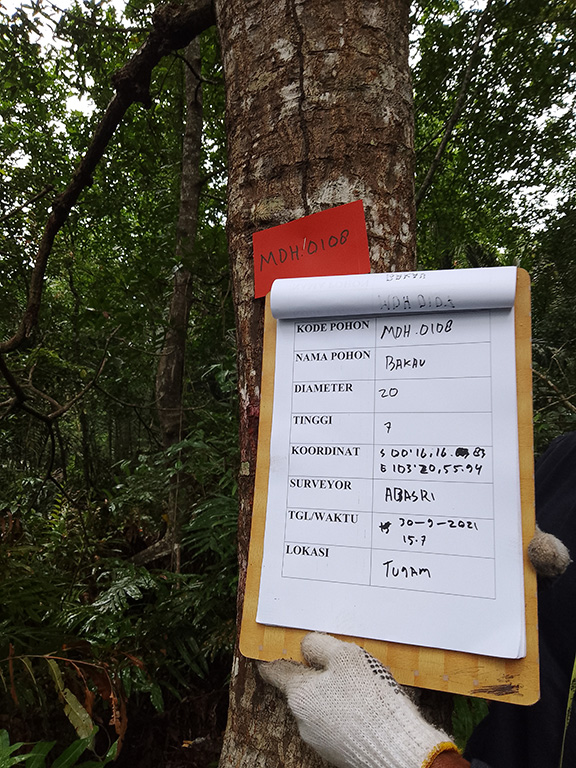 MDH.0108
BAKAU
KODE POHON MDH.0108
NAMA POHON BAKAU
DIAMETER 20
TINGGI 7
KOORDINAT S 00'16,16. 83
E 103'20,55.94
SURVEYOR ABASRI
TGL/WAKTU 30-9-2021
15.7
LOKASI TUNAM